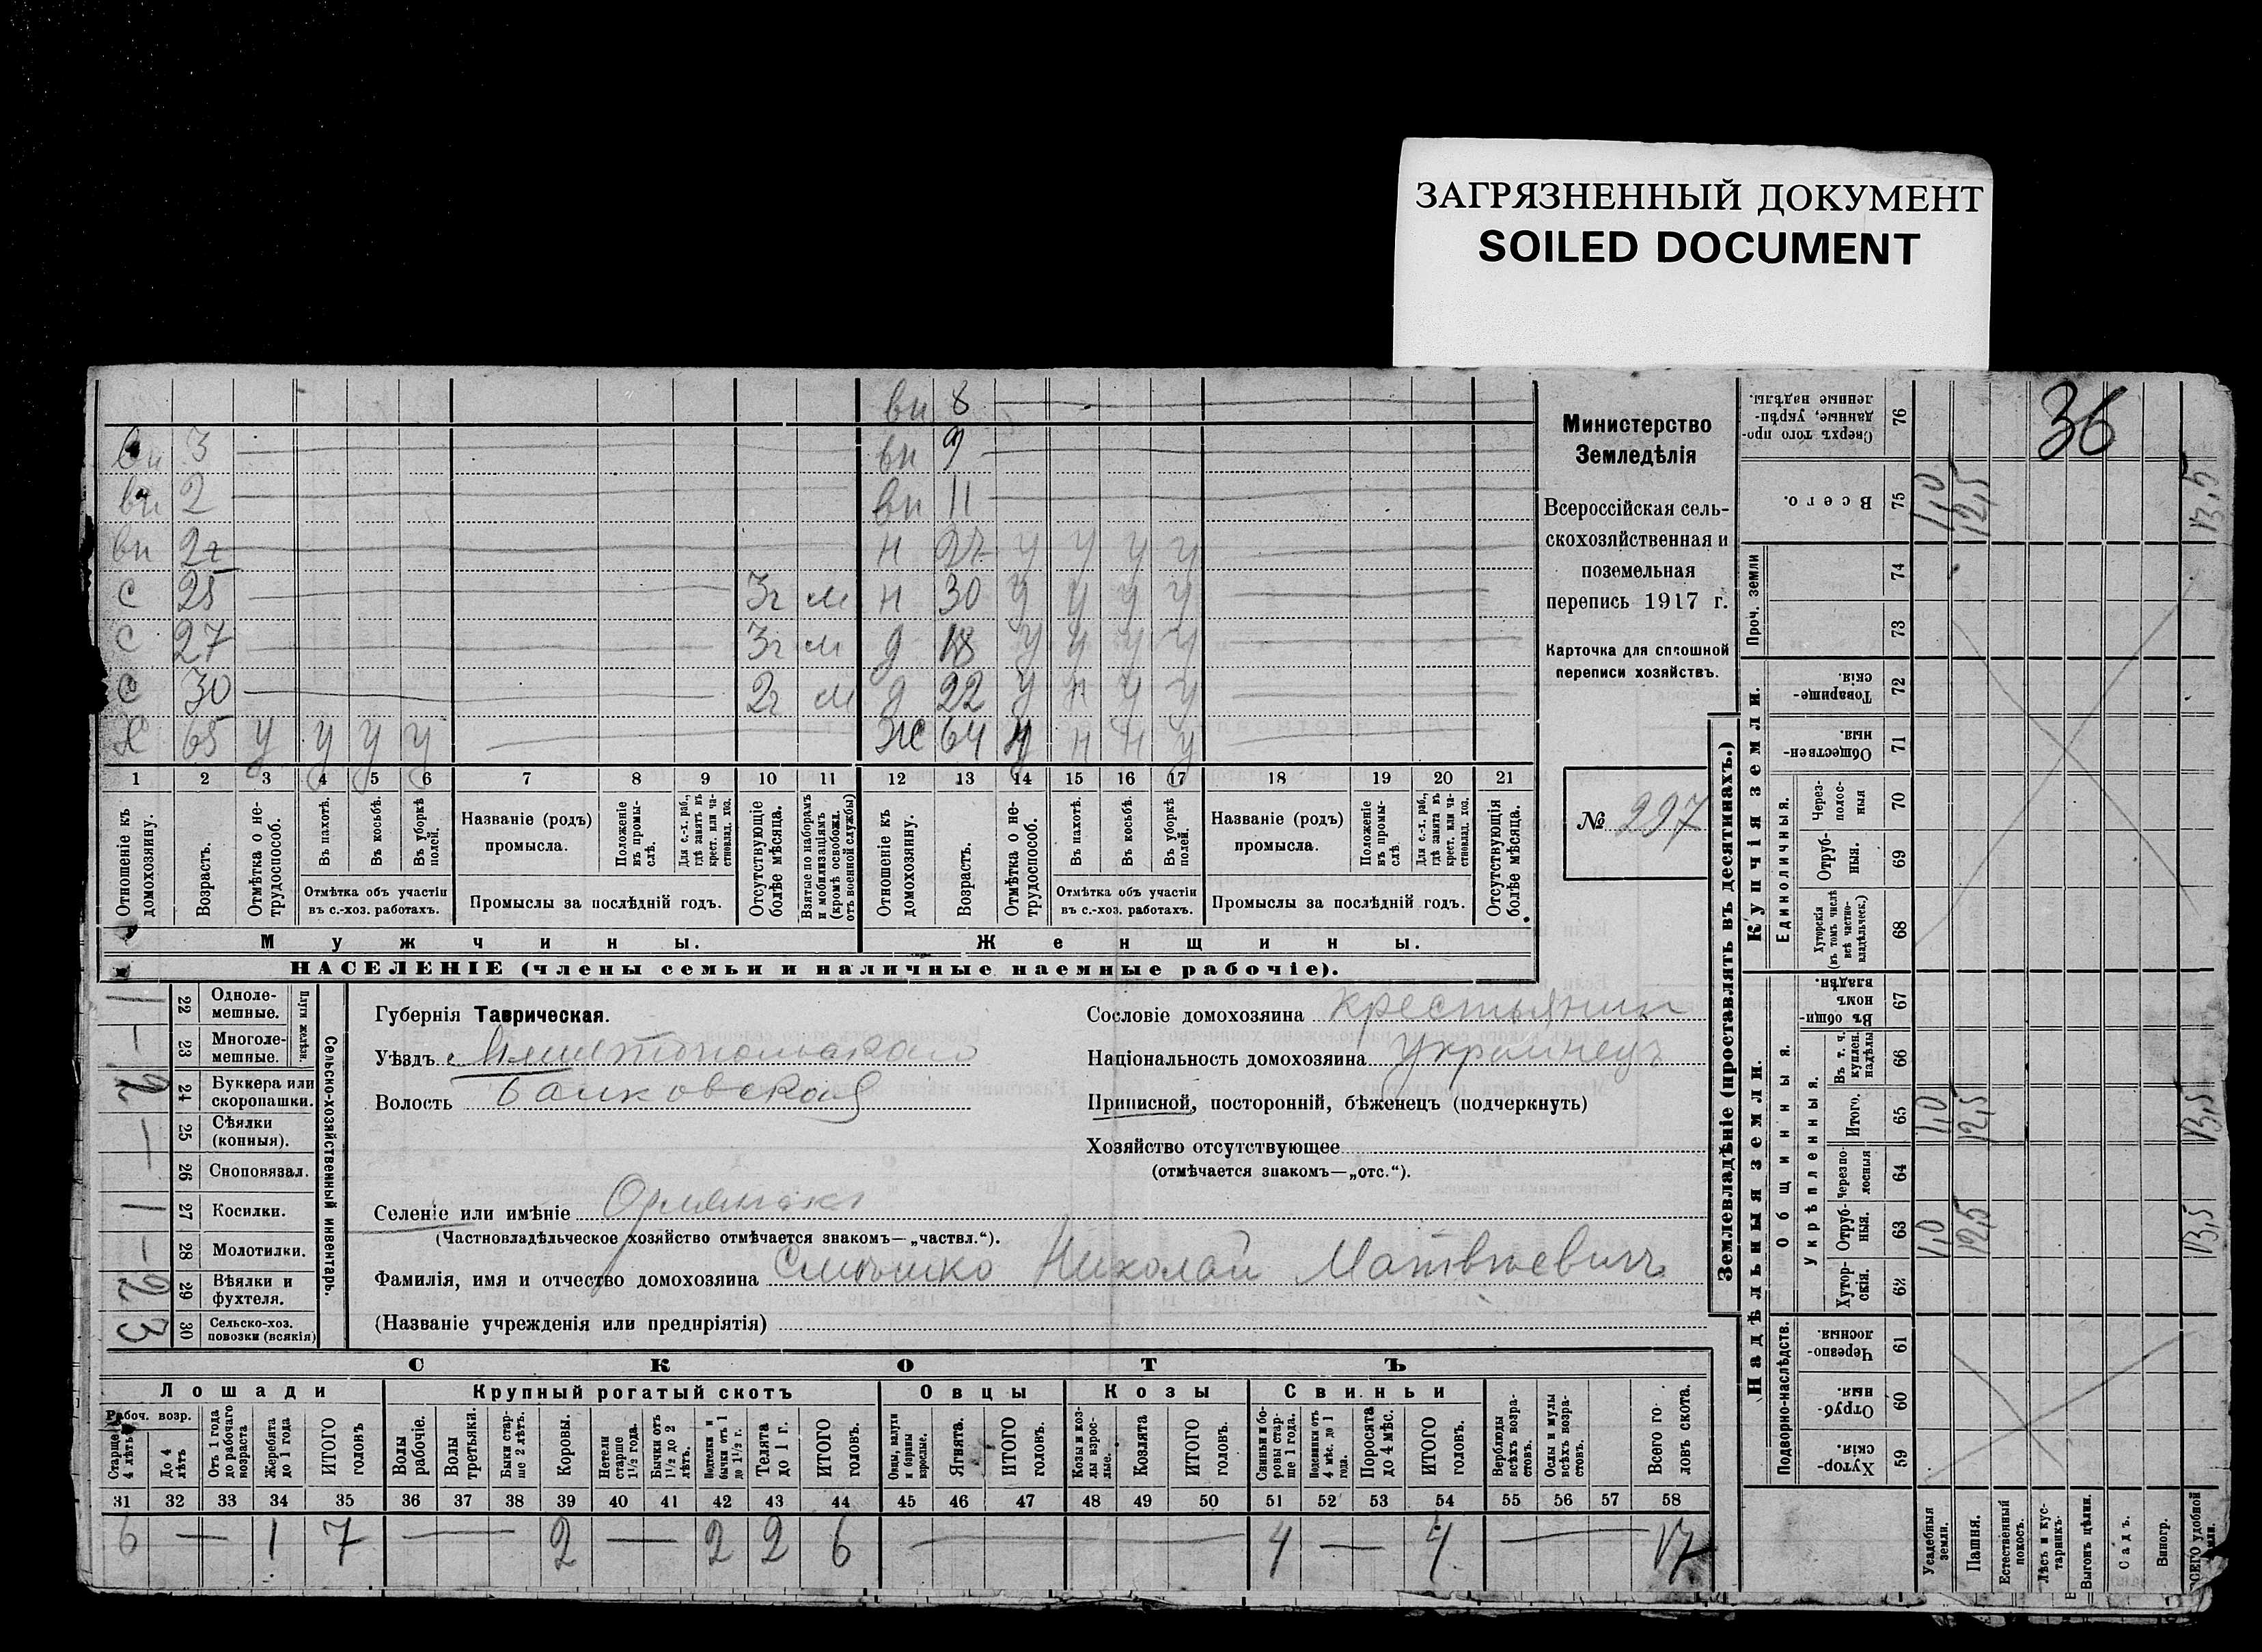 ЗАГРЯЗНЕННЫЙ ДОКУМЕНТ
SOILED DOCUMENT
36
Министерство
Земледѣлія
Всероссійская сель-
скохозяйственная и
поземельная
перепись 1917 г.
Карточка для сплошной
переписи хозяйствъ.
№ 297
вн 8
вн 3 вн 9
вн 2 вн 11
вн 2г н 27 у у у у
с 25 3г м н 30 у у у у
с 27 3г м д 18 у у у у
с 30 2г м д 22 у н у у
Х 65 у у у у Ж 64 н н у
1 2 3 4 5 6 7 8 9 10 11 12 13 14 15 16 17 18 19 20 21
Отношеніе къ домохозяину.
Возрастъ.
Отмѣтка о не-трудоспособ.
Въ пахотѣ.
Въ косьбѣ.
Въ уборкѣ полей.
Отмѣтка объ участіи
въ с.-хоз. работахъ.
Названіе (родъ)
промысла.
Положеніе въ промы-слѣ.
Для с.-х. раб., гдѣ занятъ въ крест. или ча-стновлад. хоз.
Промыслы за послѣдній годъ.
Отсутствующіе болѣе мѣсяца.
Взятые по наборамъ и мобилизаціямъ (кромѣ освобожд. отъ военной службы)
Отношеніе къ домохозяину.
Возрастъ.
Отмѣтка о не-трудоспособ.
Въ пахотѣ.
Въ косьбѣ.
Въ уборкѣ полей.
Отмѣтка объ участіи
въ с.-хоз. работахъ.
Названіе (родъ)
промысла.
Положеніе въ промы-слѣ.
Для с.-х. раб., гдѣ занята въ крест. или ча-стновлад. хоз.
Промыслы за послѣдній годъ.
Отсутствующія болѣе мѣсяца.
Мужчины. Женщины.
НАСЕЛЕНІЕ (члены семьи и наличные наемные рабочіе).
Сельско-хозяйственный инвентарь.
Плуги желѣзн.
1 22 Одноле-мешные.
— 23 Многоле-мешные.
2 24 Буккера или скоропашки.
— 25 Сѣялки (конныя).
26 Сноповязал.
1 27 Косилки.
— 28 Молотилки.
2 29 Вѣялки и фухтеля.
3 30 Сельско-хоз. повозки (всякія)
Губернія Таврическая.
Уѣздъ Мелитопольскаго
Волость Балковская
Селеніе или имѣніе Орлянска
(Частновладѣльческое хозяйство отмѣчается знакомъ—„частвл.“).
Сословіе домохозяина крестьянин
Національность домохозяина украинецъ
Приписной, посторонній, бѣженецъ (подчеркнуть)
Хозяйство отсутствующее
(отмѣчается знакомъ—„отс.“).
Фамилія, имя и отчество домохозяина Николай Матвѣевичъ
(Названіе учрежденія или предпріятія)
СКОТЪ
Лошади Крупный рогатый скотъ Овцы Козы Свиньи
Рабоч. возр.
Старше 4 лѣтъ
До 4 лѣтъ
Отъ 1 года до рабочаго возраста
Жеребята до 1 года
ИТОГО головъ
Волы рабочіе.
Волы третьяки.
Быки стар-ше 2 лѣтъ.
Коровы.
Нетели старше 1½ года.
Бычки отъ 1½ до 2 лѣтъ.
Подтелки и бычки отъ 1 до 1½ г.
Телята до 1 г.
ИТОГО головъ.
Овцы, валухи и бараны взрослые.
Ягнята.
ИТОГО головъ.
Козы и коз-лы взрос-лые.
Козлята
ИТОГО головъ.
Свиньи и бо-ровы стар-ше 1 года.
Подсвинки отъ 4 мѣс. до 1 года.
Поросята до 4 мѣс.
ИТОГО головъ.
Верблюды всѣхъ возра-стовъ.
Ослы и мулы всѣхъ возра-стовъ.
Всего го-ловъ скота.
31 32 33 34 35 36 37 38 39 40 41 42 43 44 45 46 47 48 49 50 51 52 53 54 55 56 57 58
6 — 1 7 — 2 — 2 2 6 — 4 — 4 — 17
Землевладѣніе (проставлять въ десятинахъ.)
Надѣльныя земли.
Купчія земли.
Проч. земли
Подворно-наслѣдств.
Общинныя.
Укрѣпленныя.
Единоличныя.
Сверхъ того про-данные, укрѣп-ленные надѣлы. 76
Всего. 75 1,0 12,5 13,5
74
73
Товарище-скія. 72
Обществен-ныя. 71
Через-полос-ныя 70
Отруб-ныя. 69
Хуторскія (въ томъ числѣ всѣ частно-владѣльческ.) 68
Въ общин-номъ владѣн. 67
Въ т. ч. куплен. надѣлы 66
Итого. 65 1,0 12,5 13,5
Черезпо-лосныя 64
Отруб-ныя. 63 1,0 12,5 13,5
Хутор-скія. 62
Черезпо-лосныя. 61
Отруб-ныя. 60
Хутор-скія. 59
Усадебныя земли.
Пашня.
Естественный покосъ.
Лѣсъ и кус-тарникъ.
Выгонъ цѣлин.
Садъ.
Виногр.
ВСЕГО удобной земли.